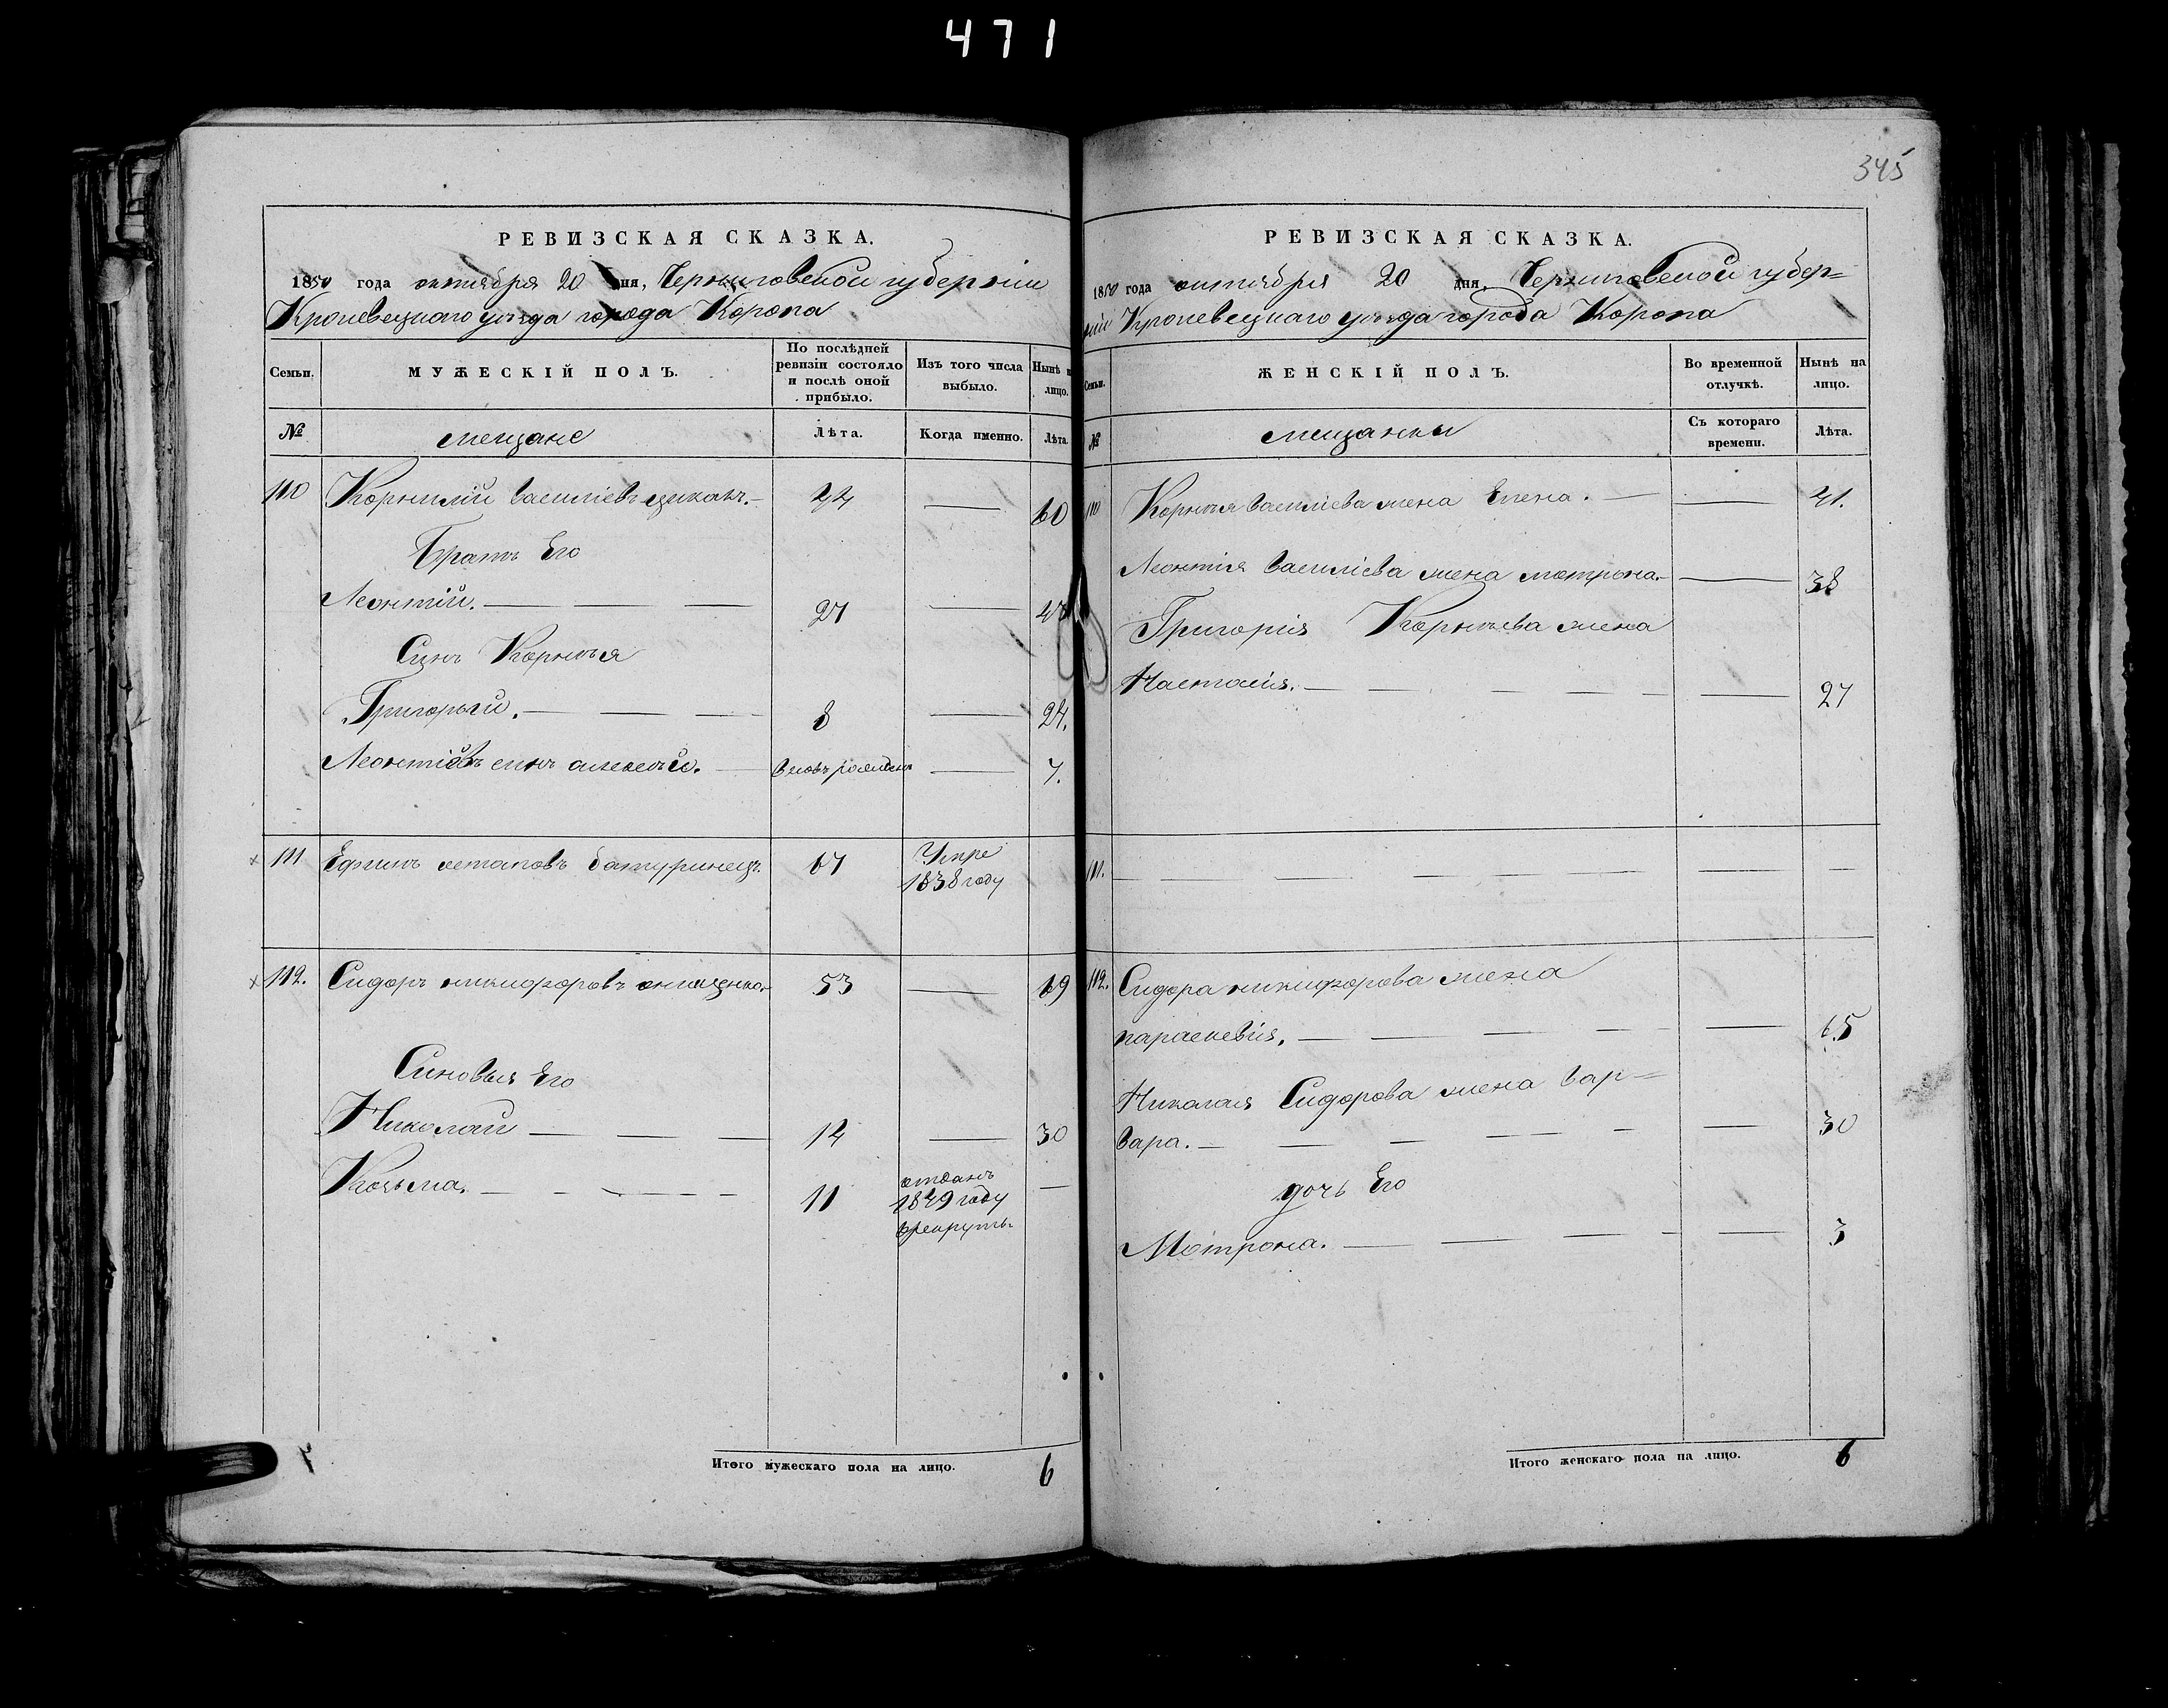 471
345
РЕВИЗСКАЯ СКАЗКА.
1850 года октября 20 дня, Черниговской губерніи
Кролевецкаго уѣзда города Коропа
Семьи.
МУЖЕСКІЙ ПОЛЪ.
По послѣдней ревизіи состояло и послѣ оной прибыло.
Изъ того числа выбыло.
Нынѣ на лицо.
№
мещане
Лѣта.
Когда именно.
Лѣта.
110 Корнилій Василіевъ циканъ. — 44 — 60
Братъ Его
Леонтій. — — — 27 — 43
Синъ Корнѣя
Григорій. — — — 8 — 24.
Леонтіевъ синъ алексѣй. — вновь рожденъ — 7.
111 Ефимъ остаповъ батуринецъ. 67 Умре
1838 году
112. Сидоръ никифоровъ онищенко. 53 — 69
Синовья Его
Николай — — — 14 — 30
Козьма. — — — 11 отданъ —
1849 году
врекруты
Итого мужескаго пола на лицо. 6
РЕВИЗСКАЯ СКАЗКА.
1850 года октября 20 дня, Черниговской губер=
ніи Кролевецкаго уѣзда города Коропа
Семьи.
ЖЕНСКІЙ ПОЛЪ.
Во временной отлучкѣ.
Нынѣ на лицо.
№
мещанки
Съ котораго времени.
Лѣта.
110 Корнѣя Василіева жена Елена. — — 41.
Леонтія Василіева жена мотрона. — 38
Григорія Корнѣева жена
Настасія. — — — — 27
111. — — — — — — —
112. Сидора никифорова жена
параскевія. — — — — 65
Николая Сидорова жена Вар=
вара. — — — — — 30
дочь Его
Мотрона. — — — — 3
Итого женскаго пола на лицо. 6